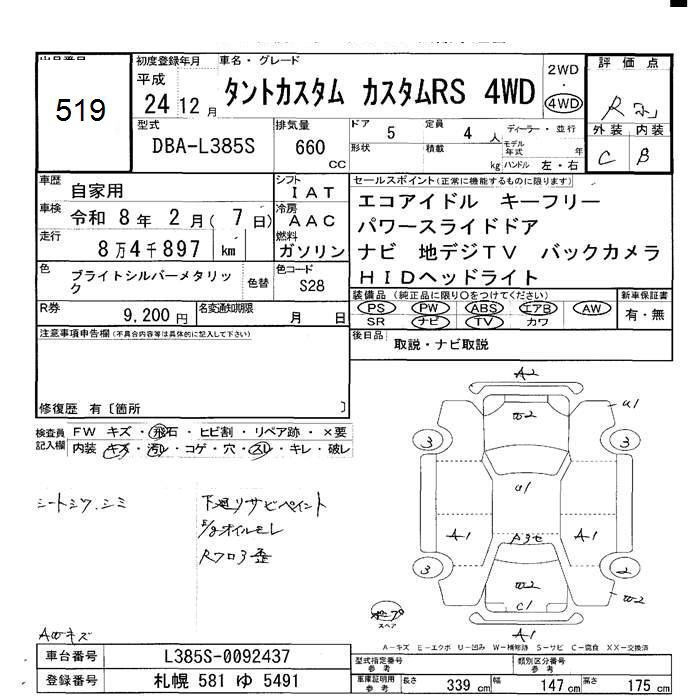 519
初度登録年月
平成
24 12 月
車名・グレード
タントカスタム カスタムRS 4WD
2WD
・
4WD
評価点
R
外装 内装
C B
型式
DBA-L385S
排気量
660
CC
ドア
5
定員
4 人
ディーラー・並行
形状
積載
kg
モデル年式
年
ハンドル 左・右
車歴
自家用
シフト
IAT
車検
令和 8年 2月 ( 7日)
冷房
AAC
走行
8万4千897 km
燃料
ガソリン
色
ブライトシルバーメタリック
色替
色コード
S28
R券
9,200 円
名変通知期限
月 日
セールスポイント(正常に機能するものに限ります)
エコアイドル キーフリー
パワースライドドア
ナビ 地デジTV バックカメラ
HIDヘッドライト
装備品 (純正品に限り○をつけてください)
PS PW ABS エアB AW
SR ナビ TV カワ
新車保証書
有・無
後日品
取説・ナビ取説
注意事項申告欄(不具合内容等は具体的に記入して下さい)
修復歴 有〔箇所 〕
検査員
記入欄
FW キズ・飛石・ヒビ割・リペア跡・×要
内装 キズ・汚レ・コゲ・穴・スレ・キレ・破レ
シートシワ.シミ
下廻リサビペイント
E/gオイルモレ
Rフロア歪
AWキズ
A2
W2
U1
3
3
U1
A1
A1
3
2
W2
W2
C1
A1
スペア
A-キズ E-エクボ U-凹み W-補修跡 S-サビ C-腐食 XX-交換済
車台番号
L385S-0092437
登録番号
札幌 581 ゆ 5491
型式指定番号
参考
類別区分番号
参考
車庫証明用
参考
長さ 339 cm
幅 147 cm
高さ 175 cm